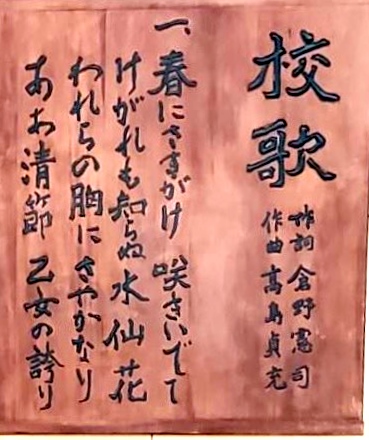 校歌
作詞 倉野憲司
作曲 高島貞充
一、春にさきがけ 咲きいでて
けがれも知らぬ 水仙花
われらの胸に さやかなり
ああ清節 乙女の誇り